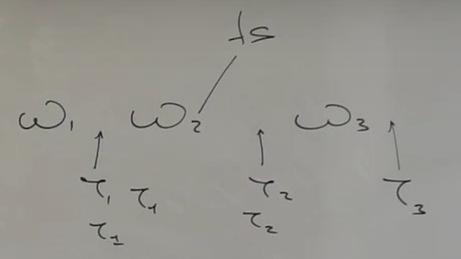 ts
ω₁ ω₂ ω₃
τ₁ τ₁ τ₂ τ₃
τ₁ τ₂